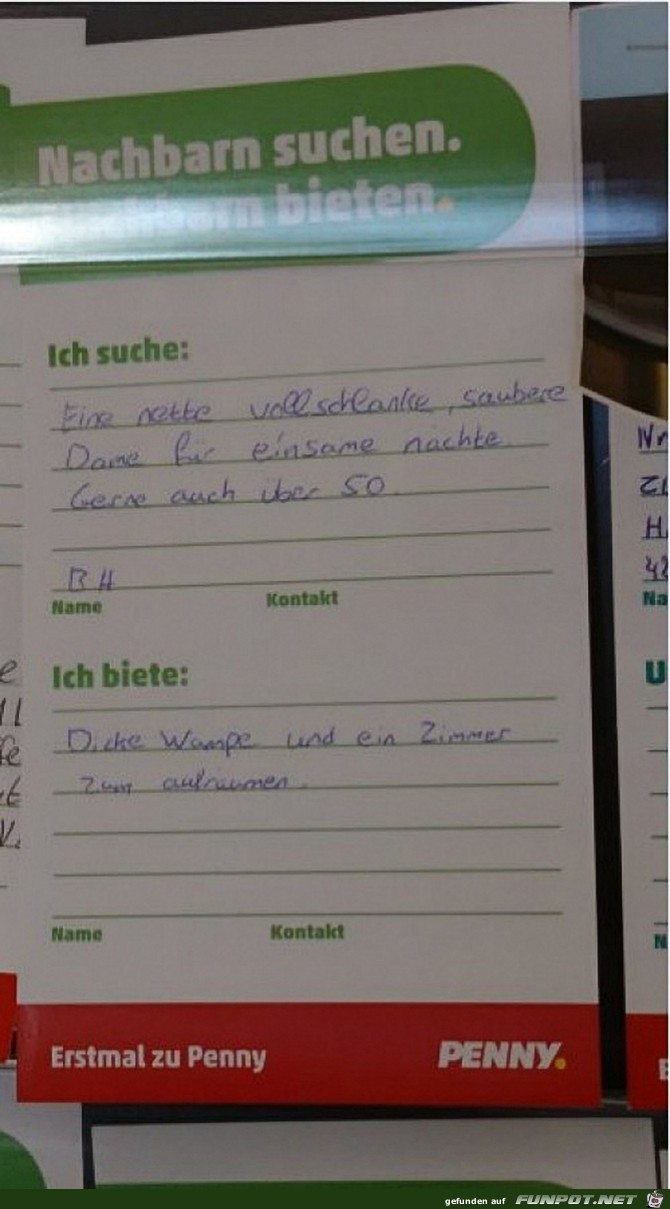 Nachbarn suchen.
Nachbarn bieten.
Ich suche:
Eine nette vollschlanke, saubere
Dame für einsame nächte
Gerne auch über 50.
BH
Name Kontakt
Ich biete:
Dicke Wampe und ein Zimmer
zum aufräumen.
Name Kontakt
Erstmal zu Penny PENNY.
Nr
H.
42
Na
U
N
gefunden auf FUNPOT.NET